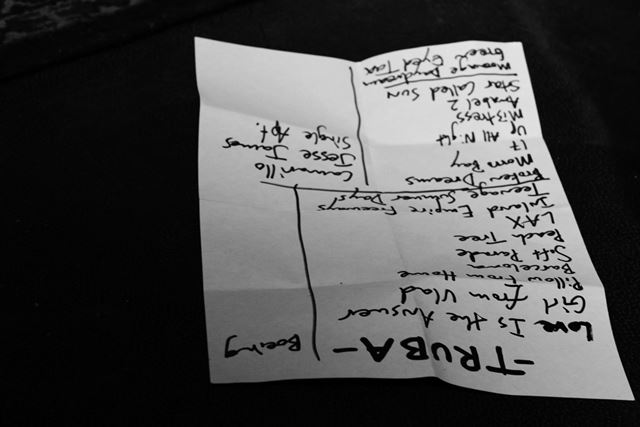 -TRUBA-
Love Is the Answer
Girl from Vlad
Pillow From Home
Barcelona
Soft Parade
Peach Tree
LAX
Inland Empire Freeways
Teenage Days!
Broken Dreams
Mom Bay
17
Up All Night
Mistress
Anabel 2
Star Called SUN
Moonage Daydream
Green Eyed Taxi
Boeing
Camarillo
Jesse James
Single Apt.